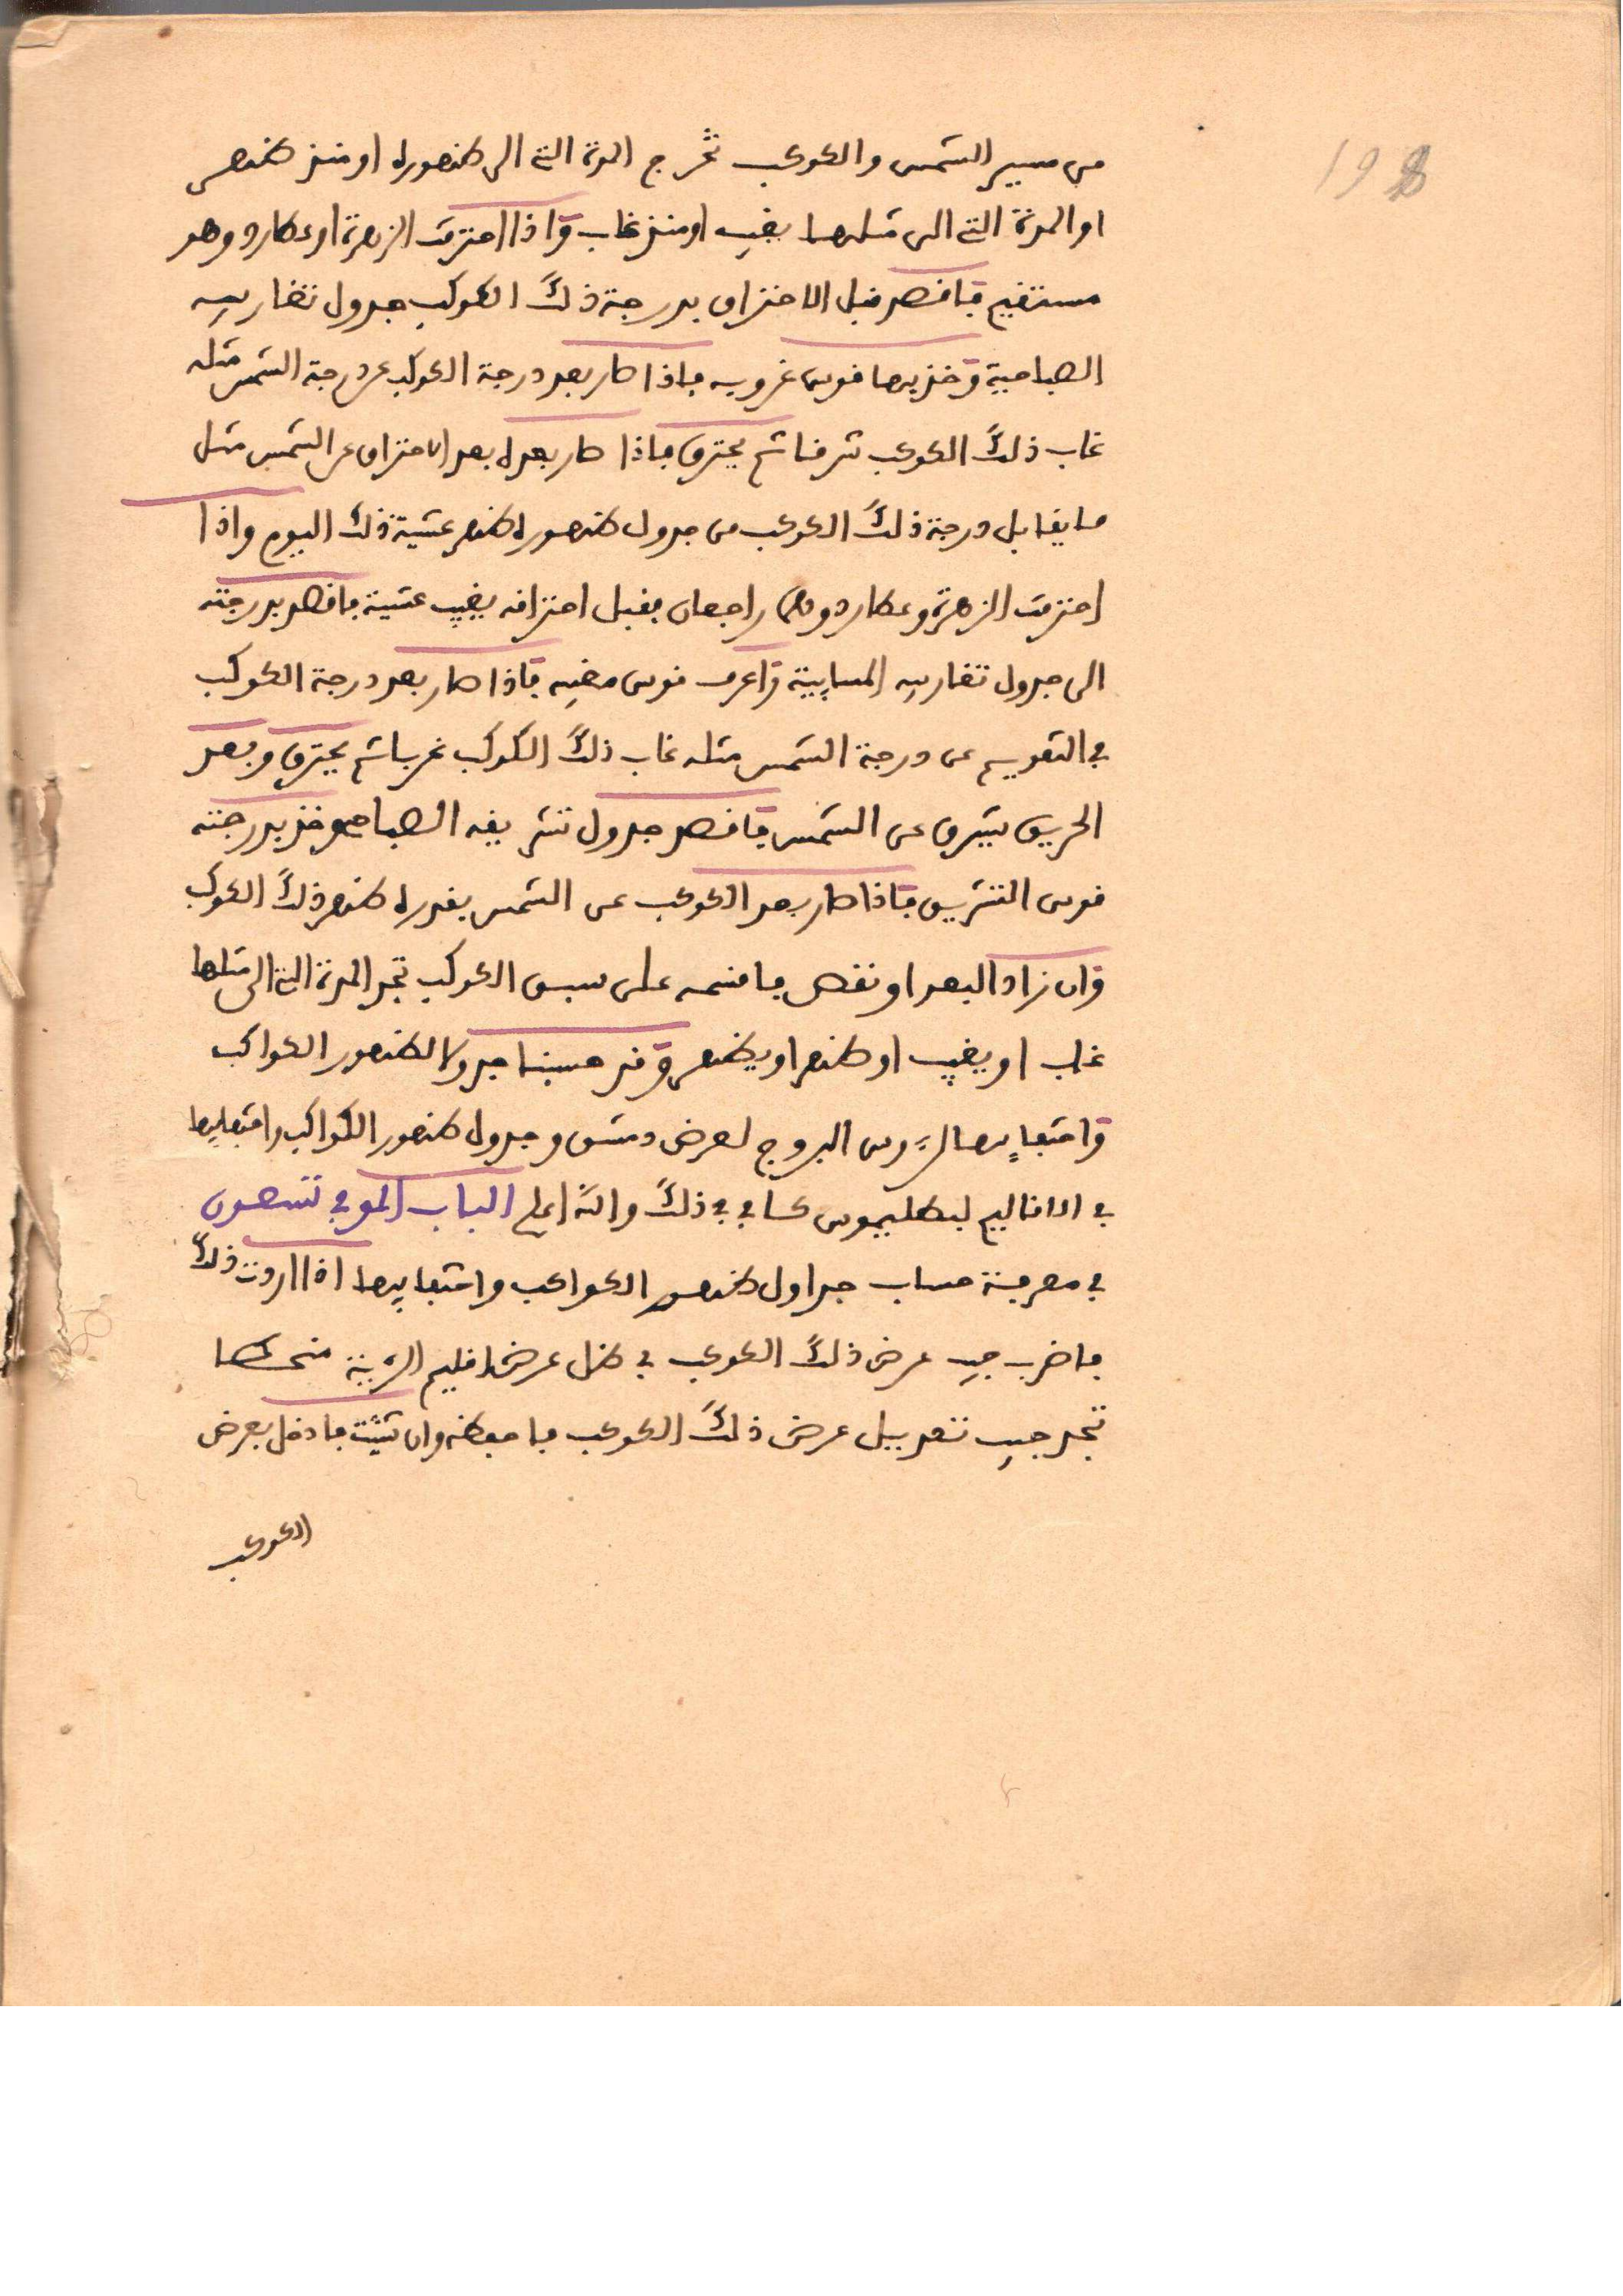 198
من مسير الشمس والكوكب تخرج المدة التي الى ظهوره او منذ ظهر
او المدة التي الى مثلها يغيب او منذ غاب واذا احترقت الزهرة او عطارد وهو
مستقيم فاقصد قبل الاحتراق بدرجة ذلك الكوكب جدول تغاريبه
الصباحية وخذ بها قوس غروبه فاذا صار بعد درجة الكوكب عن درجة الشمس مثله
غاب ذلك الكوكب شرقا ثم يحترق فاذا صار بعده بعد الاحتراق عن الشمس مثل
ما يقابل درجة ذلك الكوكب من جدول ظهوره ظهر عشية ذلك اليوم واذا
احترقت الزهرة وعطارد وهما راجعان فقبل احتراقه يغيب عشية فاقصد بدرجته
الى جدول تغاريبه المسايية واعرف قوس مغيبه فاذا صار بعد درجة الكوكب
في التقويم عن درجة الشمس مثله غاب ذلك الكوكب غربا ثم يحترق وبعد
الحريق يشرق عن الشمس فاقصد جدول تشريقه الصباحي وخذ بدرجته
قوس التشريق فاذا صار بعد الكوكب عن الشمس بقدره ظهر ذلك الكوكب
وان زاد البعد او نقص فاقسمه على سبق الكوكب تجد المدة التي الى مثلها
غاب او يغيب او ظهر او يظهر وقد حسبنا جدولا لظهور الكواكب
واختفايها لرءوس البروج لعرض دمشق وجدول ظهور الكواكب واختفايها
في الاقاليم لبطليموس كافي في ذلك والله اعلم الباب الموفي تسعون
في معرفة حساب جداول ظهور الكواكب واختفايها اذا اردت ذلك
فاضرب جيب عرض ذلك الكوكب في ظل عرض اقليم الرؤية منحطا
تجد جيب تعديل عرض ذلك الكوكب فاحفظه وان شئت فادخل بعرض
الكوكب